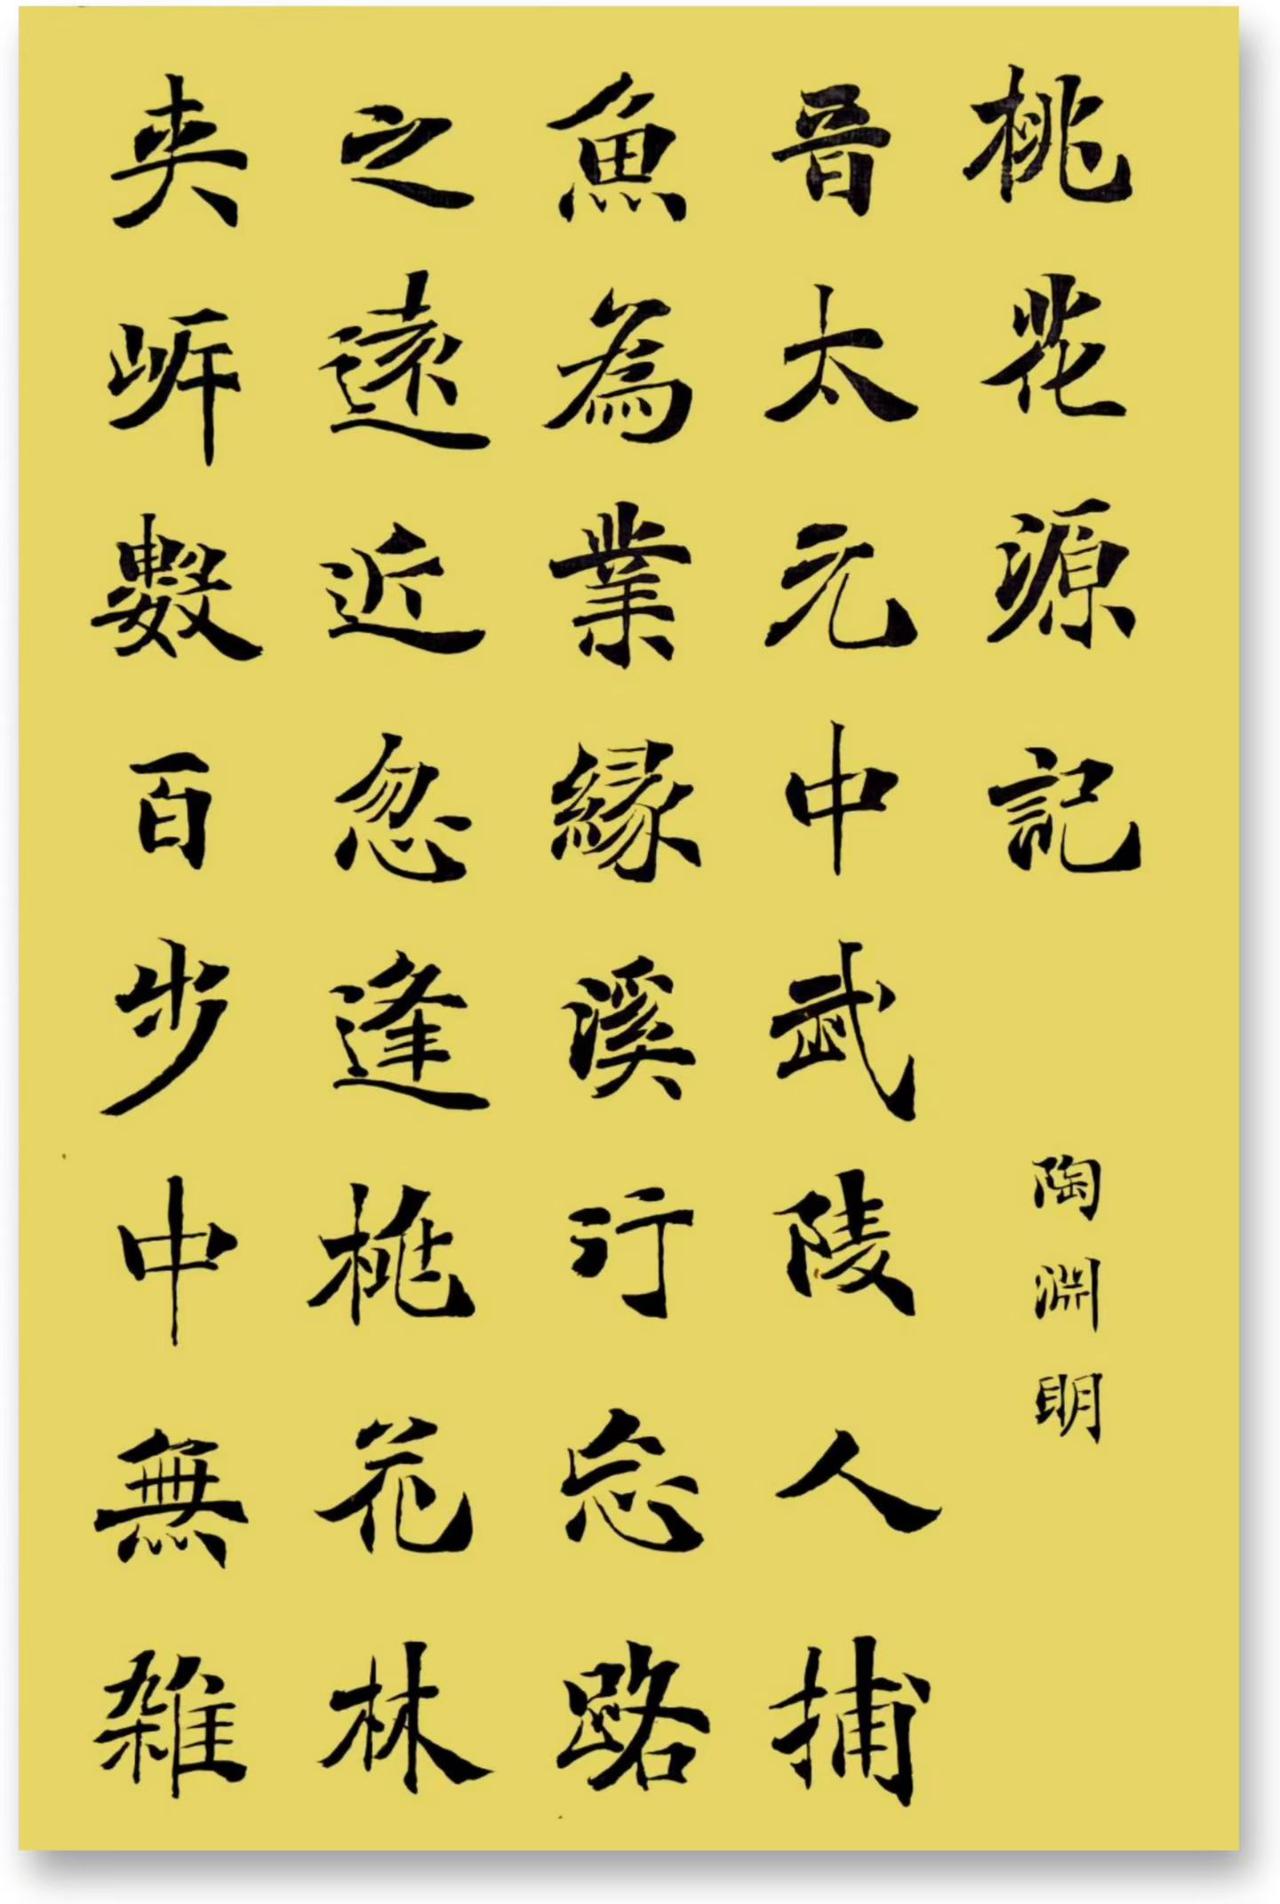 桃花源記
陶淵明
晉太元中武陵人捕
魚為業緣溪行忘路
之遠近忽逢桃花林
夾岸數百步中無雜